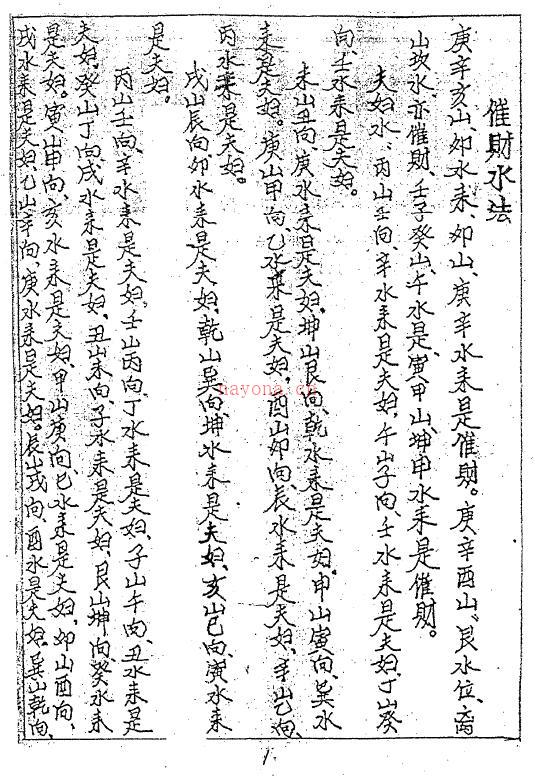 催財水法
庚辛亥山、卯水来、卯山、庚辛水来是催財。庚辛酉山、艮水位、离
山坎水、亦催財、壬子癸山、午水是、寅甲山、坤申水来是催財。
夫妇水、丙山壬向、辛水来是夫妇、午山子向、壬水来是夫妇、丁山癸
向、壬水来是夫妇。
未山丑向、庚水来是夫妇、坤山艮向、乾水来是夫妇、申山寅向、巽水
来是夫妇。庚山甲向、乙水来是夫妇、酉山卯向、辰水来是夫妇、辛山乙向、
丙水来是夫妇。
戌山辰向、卯水来是夫妇、乾山巽向、坤水来是夫妇、亥山巳向、寅水来
是夫妇。
丙山壬向、辛水来是夫妇、壬山丙向、丁水来是夫妇、子山午向、丑水来是
夫妇、癸山丁向、戌水来是夫妇、丑山未向、子水来是夫妇、艮山坤向、癸水来
是夫妇。寅山申向、亥水来是夫妇、甲山庚向、巳水来是夫妇、卯山酉向、
戌水来是夫妇、乙山辛向、庚水来是夫妇。辰山戌向、酉水是夫妇、巽山乾向、
1
nayona.cn